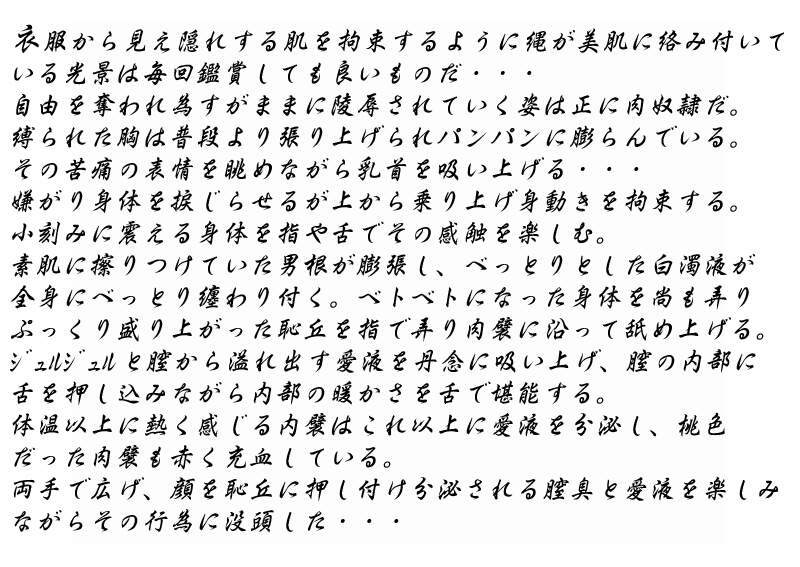 衣服から見え隠れする肌を拘束するように縄が美肌に絡み付いて
いる光景は毎回鑑賞しても良いものだ・・・
自由を奪われ為すがままに陵辱されていく姿は正に肉奴隷だ。
縛られた胸は普段より張り上げられパンパンに膨らんでいる。
その苦痛の表情を眺めながら乳首を吸い上げる・・・
嫌がり身体を捩じらせるが上から乗り上げ身動きを拘束する。
小刻みに震える身体を指や舌でその感触を楽しむ。
素肌に擦りつけていた男根が膨張し、べっとりとした白濁液が
全身にべっとり纏わり付く。ベトベトになった身体を尚も弄り
ぷっくり盛り上がった恥丘を指で弄り肉襞に沿って舐め上げる。
ジュルジュルと膣から溢れ出す愛液を丹念に吸い上げ、膣の内部に
舌を押し込みながら内部の暖かさを舌で堪能する。
体温以上に熱く感じる内襞はこれ以上に愛液を分泌し、桃色
だった肉襞も赤く充血している。
両手で広げ、顔を恥丘に押し付け分泌される膣臭と愛液を楽しみ
ながらその行為に没頭した・・・